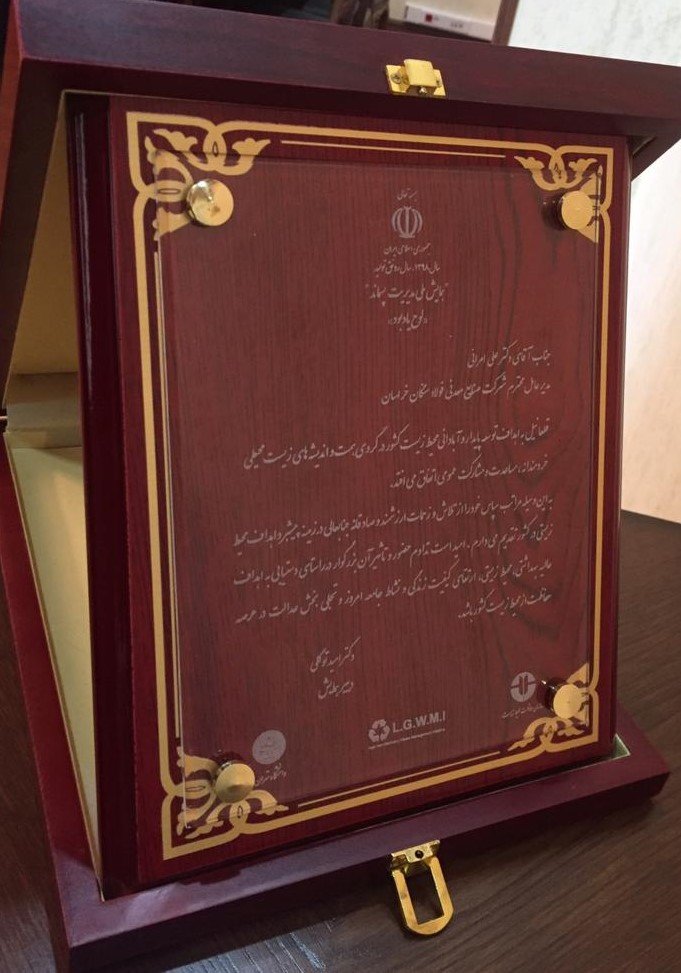 بسمه تعالی
جمهوری اسلامی ایران
سال ۱۳۹۸، سال رونق تولید
"همایش ملی مدیریت پسماند"
«لوح یادبود»
جناب آقای دکتر علی امرائی
مدیر عامل محترم شرکت صنایع معدنی فولاد سنگان خراسان
قطعا نیل به اهداف توسعه پایدار و آبادانی محیط زیست کشور در گرو ی همت و اندیشه های زیست محیطی
خردمندانه، مساعدت و مشارکت عمومی اتفاق می افتد.
به این وسیله مراتب سپاس خود را از تلاش و زحمات ارزشمند و صادقانه جنابعالی در زمینه پیشبرد اهداف محیط
زیستی در کشور تقدیم می دارم. امید است تداوم حضور و تاثیر آن بزرگوار در راستای دستیابی به اهداف
عالیه بهداشتی، محیط زیستی، ارتقای کیفیت زندگی و نشاط جامعه امروز و تجلی بخش عدالت در عرصه
حفاظت از محیط زیست کشور باشد.
دکتر امید توکلی
دبیر همایش
دانشگاه تهران
L.G.W.M.I
سازمان حفاظت محیط زیست